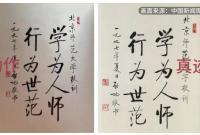 画面来源：中国新闻周
北京师范大学校训
学为人师
行为世范
一九九七年夏日启功敬书
作
北京师范大学校训
学为人师
行为世范
一九九七年夏日启功敬书
真迹